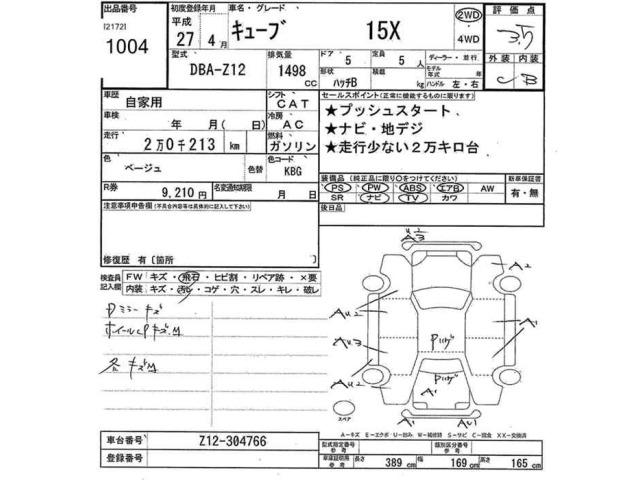 出品番号
I2172I
1004
初度登録年月
平成
27 4月
車名・グレード
キューブ 15X
2WD
・4WD
評価点
3.5
型式
DBA-Z12
排気量
1498
CC
ドア
5
形状
ハッチB
定員
5 人
積載
kg
ディーラー・並行
モデル年式 年
ハンドル 左・右
外装 内装
C B
車歴
自家用
シフト
CAT
車検
年 月( 日)
冷房
AC
走行
2万0千213 km
燃料
ガソリン
色
ベージュ
色替
色コード
KBG
R券
9,210円
名変通知期限
月 日
セールスポイント(正常に機能するものに限ります)
★プッシュスタート
★ナビ・地デジ
★走行少ない2万キロ台
装備品(純正品に限り○をつけてください)
PS PW ABS エアB AW
SR ナビ TV カワ
新車保証書
有・無
後日品
注意事項申告欄(不具合内容等は具体的に記入して下さい)
修復歴 有〔箇所 〕
検査員記入欄
FW キズ・飛石・ヒビ割・リペア跡・×要
内装 キズ・汚レ・コゲ・穴・スレ・キレ・破レ
Dミラーキズ
ホイールCPキズM
各キズM
U2
A3
A2
AU2
A1
AU3
Pｺｹﾞ
AU2
Pｺｹﾞ
A1
A1
AU1
スペア
A－キズ E－エクボ U－凹み W－補修跡 S－サビ C－腐食 XX－交換済
車台番号
Z12-304766
登録番号
型式指定番号
参考
類別区分番号
参考
車庫証明用
参考
長さ
389 cm
幅
169 cm
高さ
165 cm